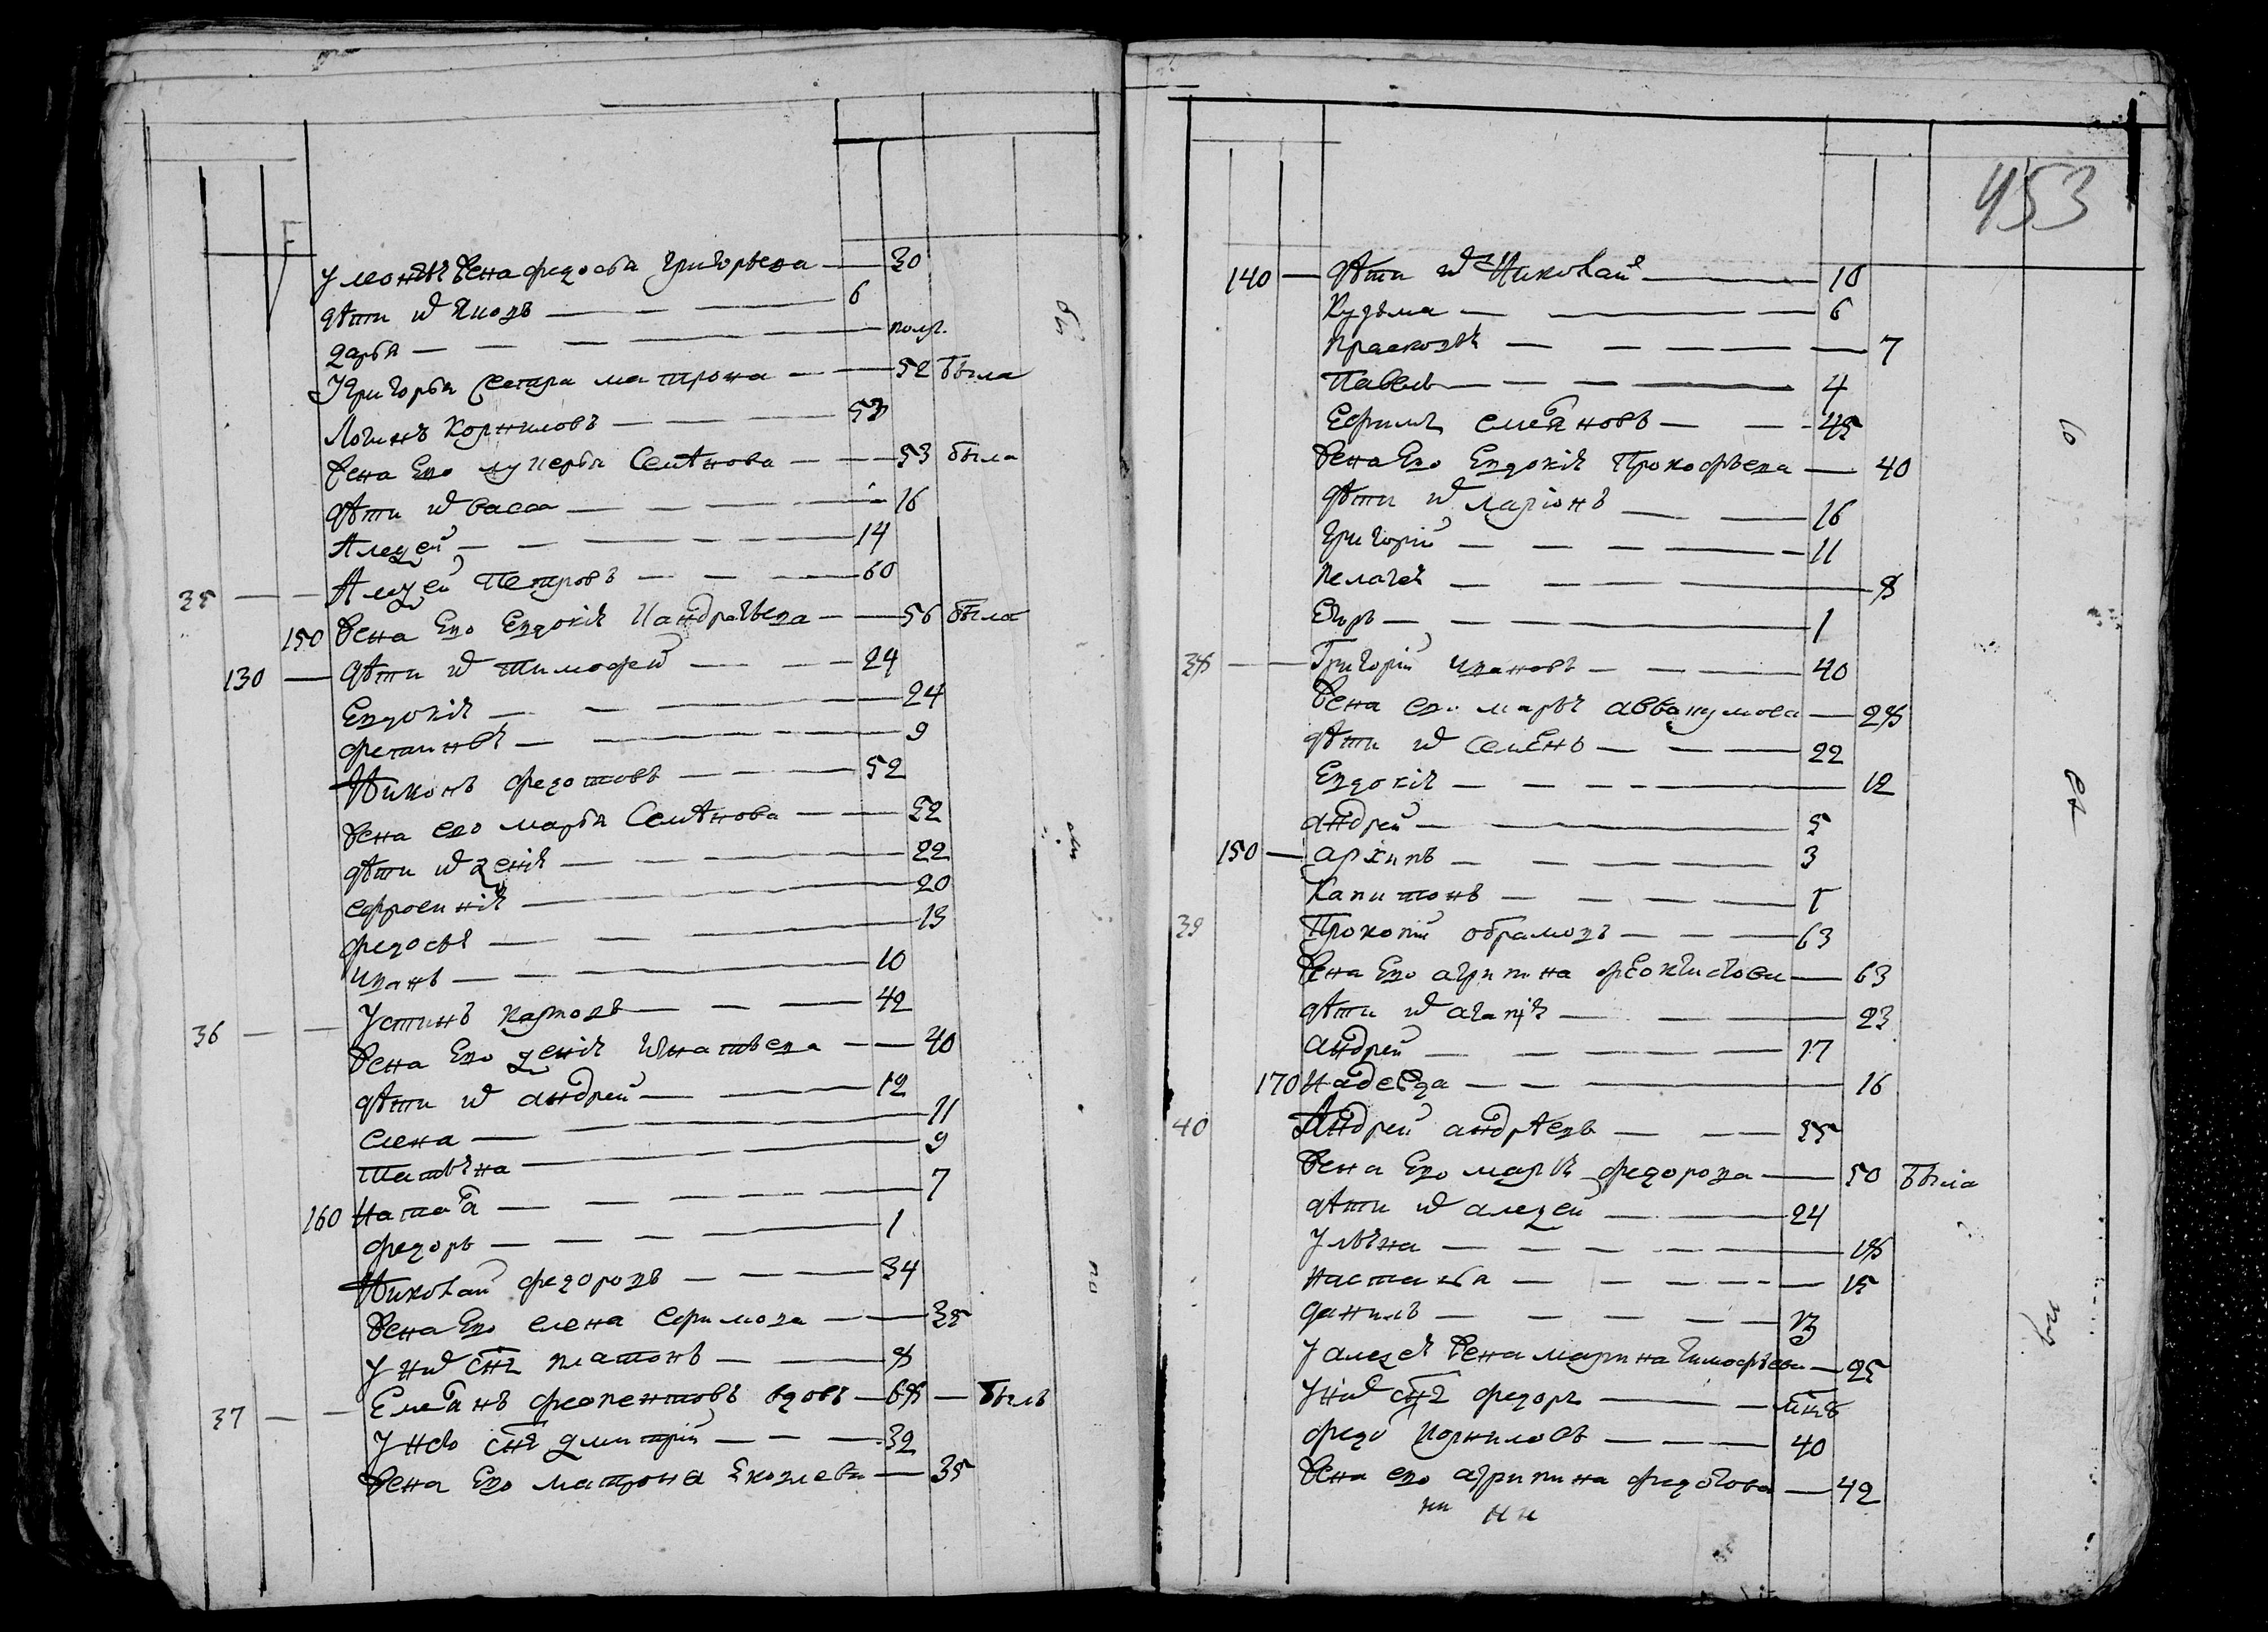 У жена федосья григорьева — 30
дѣти их яковъ — 6
дарья — полг.
У григорья сестра матрона — 52 была
Логинъ корниловъ — 53
жена Ево лукерья Семѣнова — 53 была
дѣти их васса — 16
Алеѯей — 14
35 — Алеѯей Петровъ — 60
150 жена Ево Евдокия Кандратьева — 56 была
130 — дѣти их тимофей — 24
Евдокия — 24
фетинья — 9
Никонъ федотовъ — 52
жена ево марья Семѣнова — 52
дѣти их ѯения — 22
ефросиния — 20
федосья — 13
иванъ — 10
36 — Устинъ карповъ — 42
жена Ево ѯения игнатьева — 40
дѣти их андрей — 12
елена — 11
татьяна — 9
160 наталья — 7
федоръ — 1
Николай федоровъ — 34
жена Ево елена ефимова — 35
У них снъ платонъ — 8
37 — Емельянъ вдовъ — 68 — былъ
У нево снъ дмитрий — 32
жена Ево матрона яковлева — 35
453
140 — дѣти их Николай — 10
Кузьма — 6
прасковья — 7
Павелъ — 4
Ефимъ емельяновъ — 45
жена Ево Евдокия Прокофьева — 40
дѣти их ларионъ — 16
григорий — 11
пелагея — 8
Егоръ — 1
38 — Григорий ивановъ — 40
жена ево марья аввакумова — 28
дѣти их семенъ — 22
Евдокия — 12
андрей — 5
150 — архипъ — 3
Капитонъ — 1
39 Прокопий обрамовъ — 63
жена Ево агрипина феоктистова — 63
дѣти их агапия — 23
андрей — 17
170 надежда — 16
40 Андрей андрѣевъ — 55
жена Ево марья федорова — 50 была
дѣти их алеѯей — 24
Ульяна — 18
настасья — 15
данилъ — 13
У алеѯея жена марина тимофѣева — 25
У них снъ федоръ —
федоръ корниловъ — 40
жена ево агрипина федотова — 42